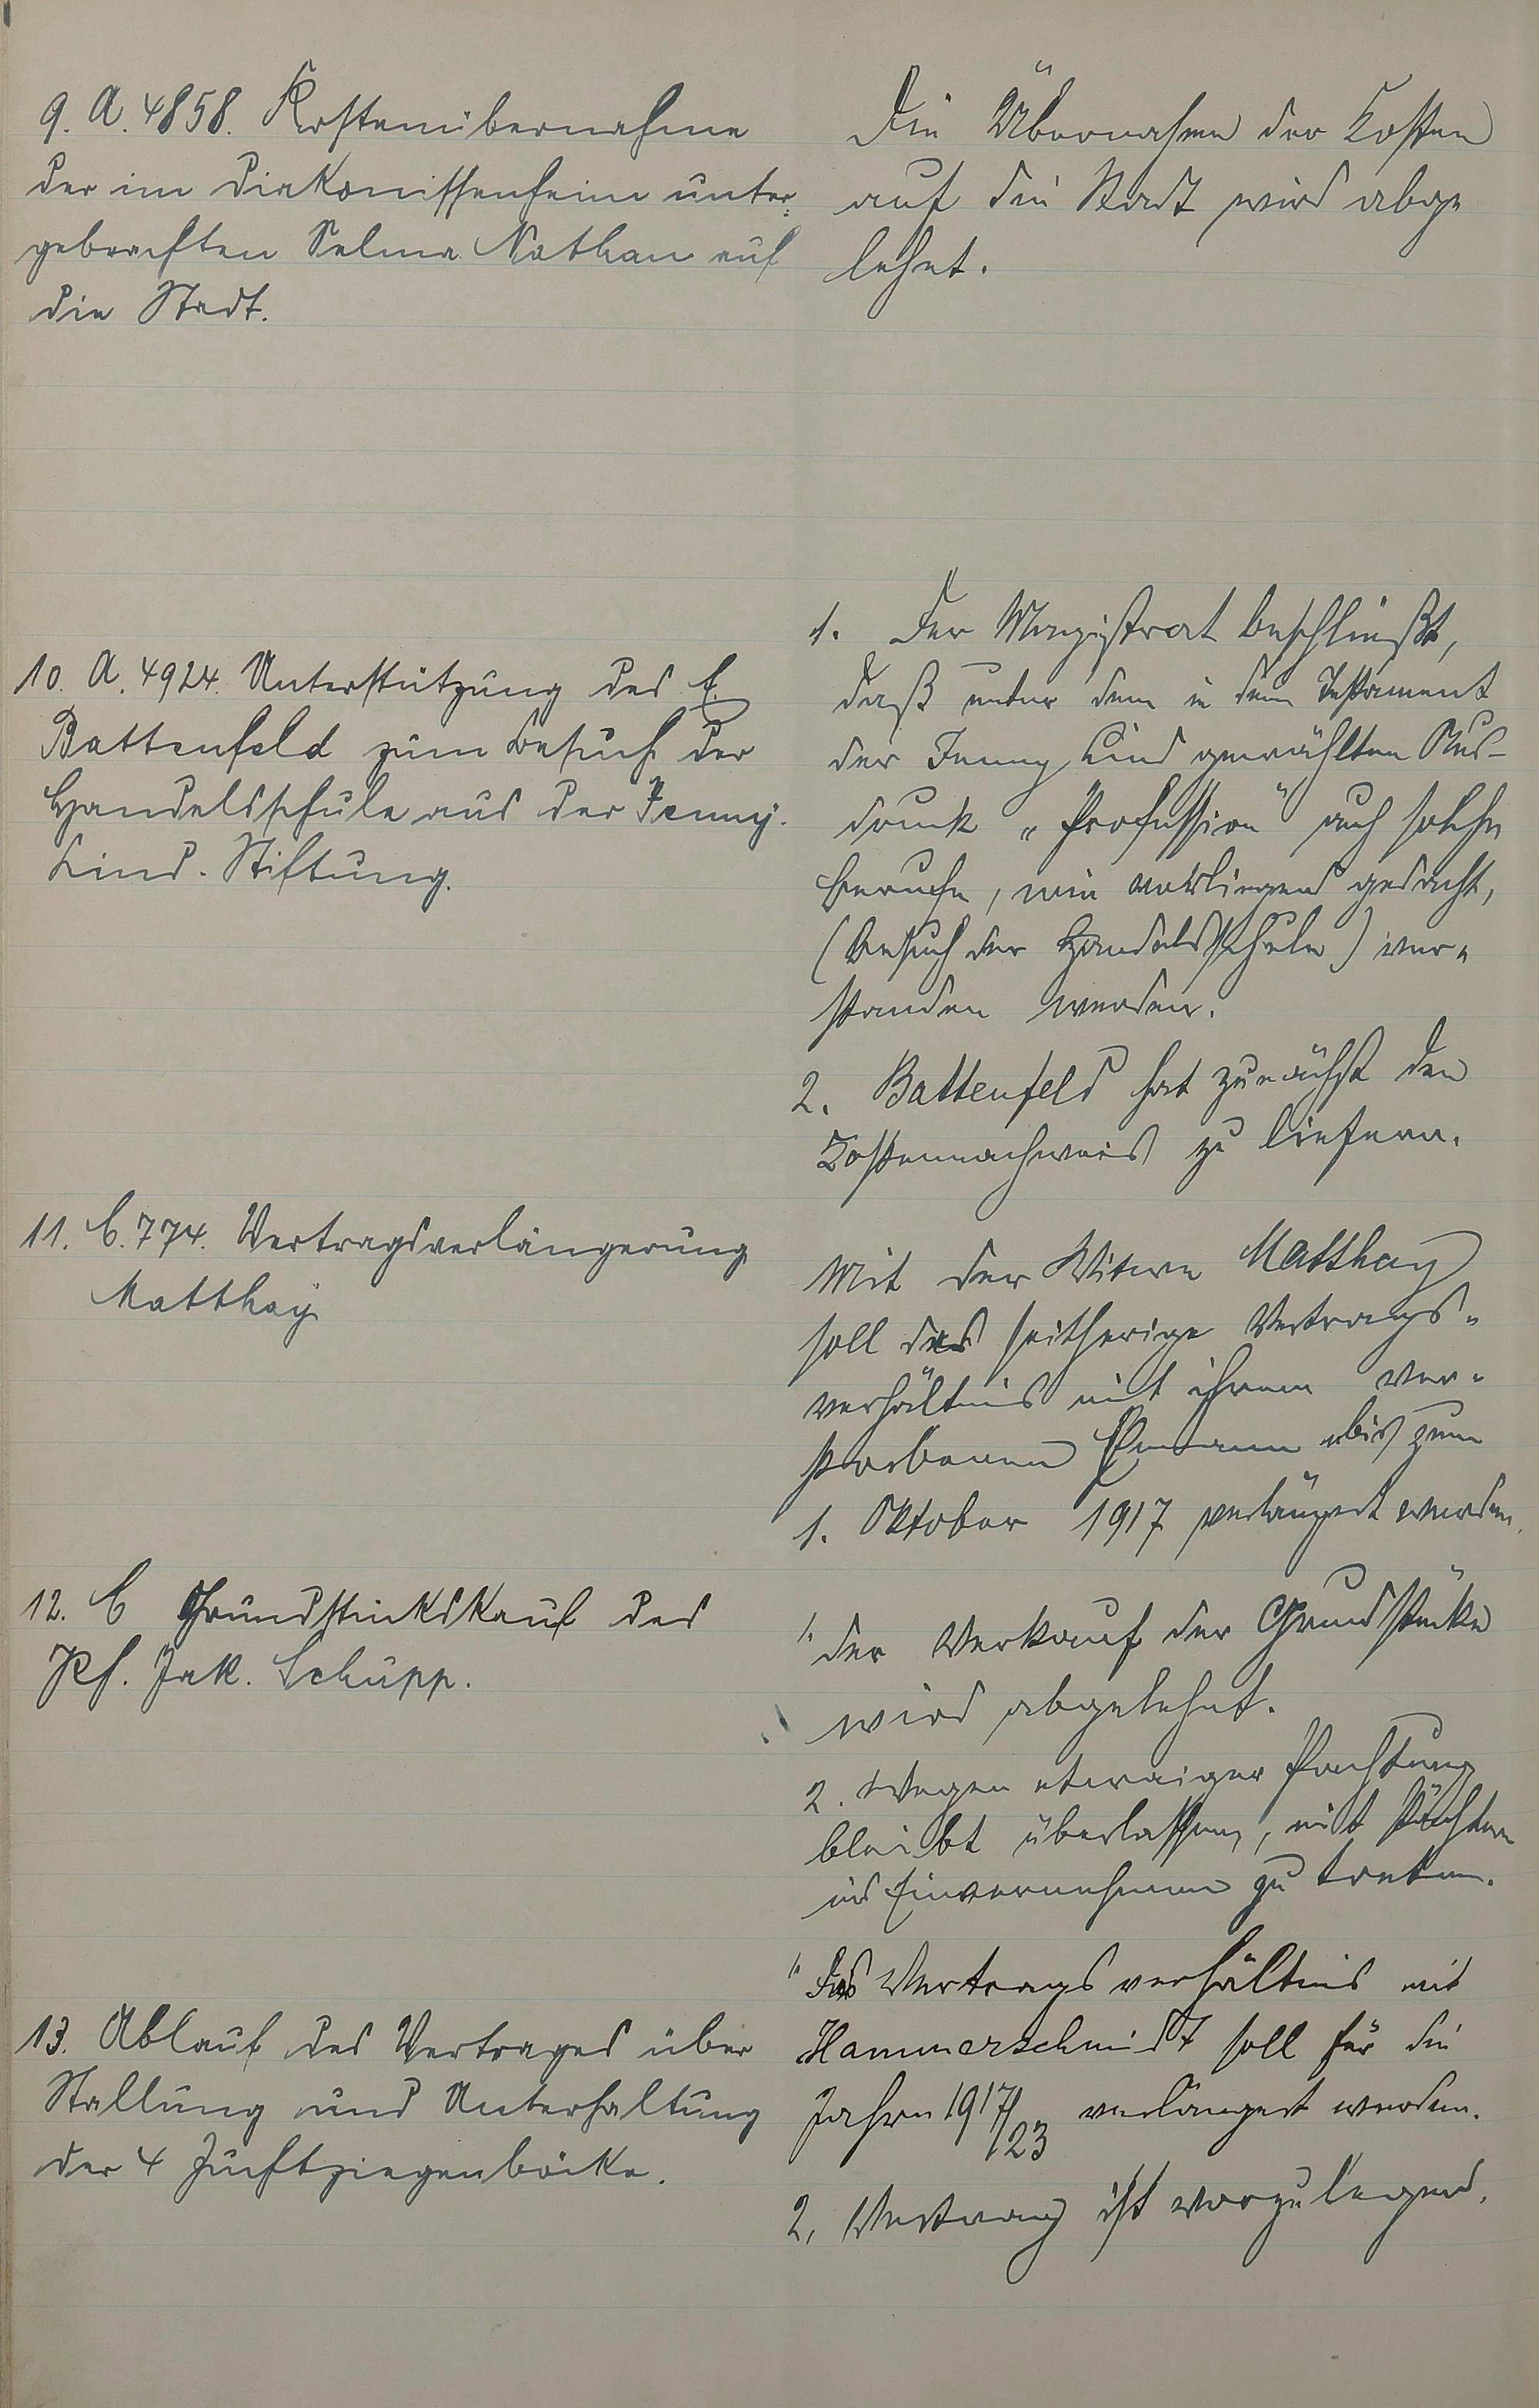 9. A. 4858. Kostenübernahme
der im Diakonissenheim unter-
gebrachten Selma Nathan auf
die Stadt.
Die Übernahme der Kosten
auf die Stadt wird abge
lehnt.
10. A. 4924. Unterstützung des E.
Battenfeld zum Besuch der
Handelsschule aus der Jenny-
Lind-Stiftung.
1. Der Magistrat beschließt,
daß unter dem in dem Testament
der Jenny Lind gewählten Aus-
druck „Profession" auch solche
Berufe, wie vorliegend gedacht,
(Besuch der Handelsschule) ver-
standen werden.
2. Battenfeld hat zunächst den
Kostennachweis zu liefern.
11. C. 774. Vertragsverlängerung
Matthay
Mit der Witwe Matthay
soll das seitherige Vertrags-
verhältnis mit ihrem ver-
storbenen Ehemann bis zum
1. Oktober 1917 verlängert werden.
12. C Grundstückskauf des
Pf. Jak. Schupp.
1. Der Verkauf der Grundstücke
wird abgelehnt.
2. Wegen etwaiger Pachtung
bleibt überlassen, mit Pächtern
ins Einvernehmen zu treten.
13. Ablauf des Vertrages über
Stallung und Unterhaltung
der 4 Zuchtziegenböcke.
1. Das Vertragsverhältnis mit
Hammerschmidt soll für die
Jahre 1917/23 verlängert werden.
2. Vertrag ist vorzulegend.